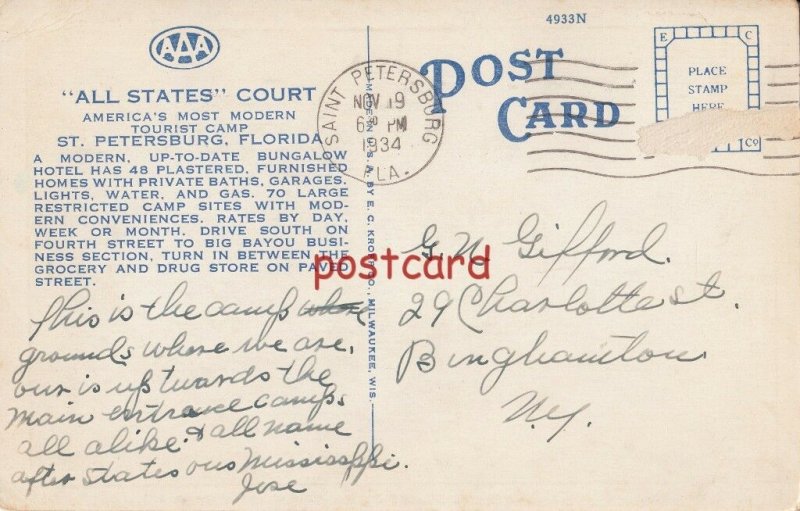 4933N
AAA
"ALL STATES" COURT
AMERICA'S MOST MODERN
TOURIST CAMP
ST. PETERSBURG, FLORIDA
A MODERN, UP-TO-DATE BUNGALOW
HOTEL HAS 48 PLASTERED, FURNISHED
HOMES WITH PRIVATE BATHS, GARAGES,
LIGHTS, WATER, AND GAS. 70 LARGE
RESTRICTED CAMP SITES WITH MOD-
ERN CONVENIENCES. RATES BY DAY,
WEEK OR MONTH. DRIVE SOUTH ON
FOURTH STREET TO BIG BAYOU BUSI-
NESS SECTION, TURN IN BETWEEN THE
GROCERY AND DRUG STORE ON PAVED
STREET.
This is the camp where
grounds where we are,
our is up twards the
main entrance camps
all alike. & all name
after states ous Mississppi.
Jose
U. S. A. BY E. C. KRO
CO., MILWAUKEE, WIS.
SAINT PETERSBURG
NOV 19
6 PM
1934
FLA.
POST
CARD
E C
PLACE
STAMP
HERE
CO
G. N. Gifford.
29 Charlotte st.
Binghamton
N.y.
postcard